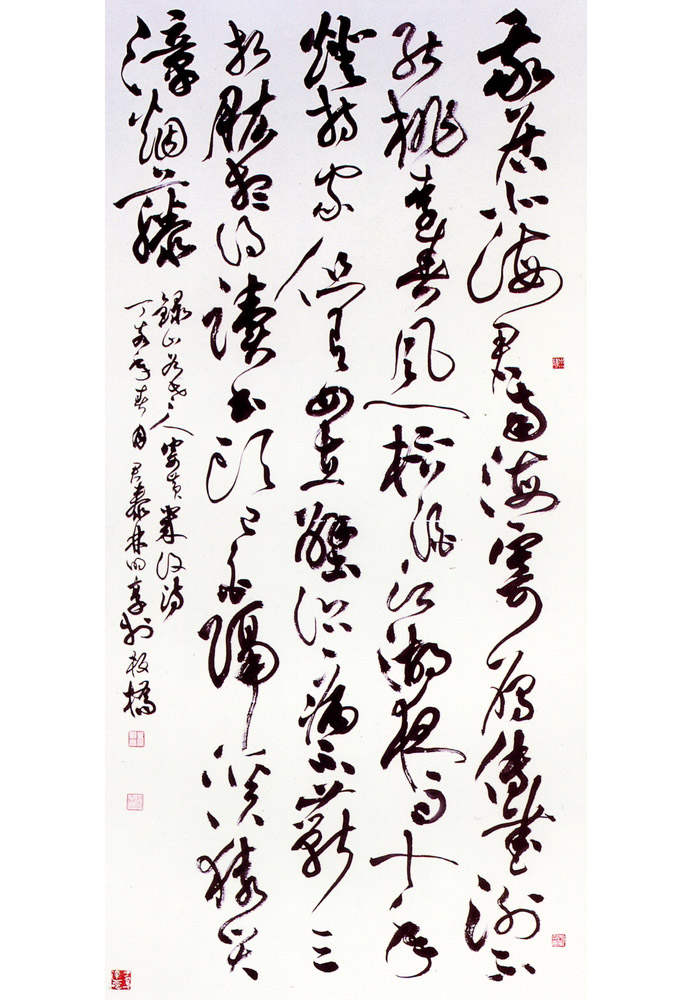 我居北海君南海寄雁傳書謝不
能桃李春風一杯酒江湖夜雨十年
燈持家但有四立壁治病不蘄三
折肱想得讀書頭已白隔溪猿哭
漳烟藤
錄山谷老人寄黃幾復詩
丁亥年春月君泰林四享於板橋